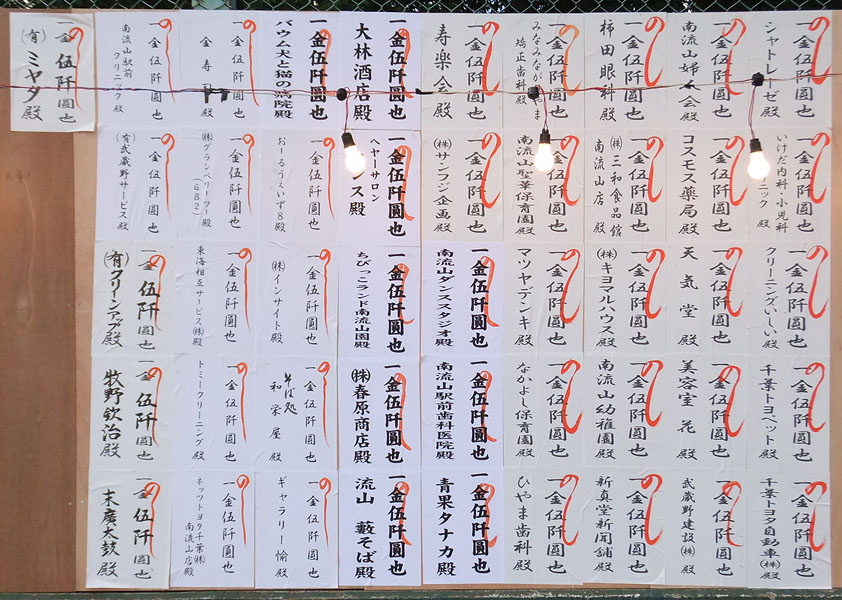 のし
一金伍阡圓也
シャトレーゼ殿
のし
一金伍阡圓也
南流山婦人会殿
のし
一金伍阡圓也
柿田眼科殿
のし
一金伍阡圓也
みなみながれやま
矯正歯科殿
のし
一金伍阡圓也
寿楽会殿
のし
一金伍阡圓也
大林酒店殿
のし
一金伍阡圓也
バウム犬と猫の病院殿
のし
一金伍阡圓也
金寿 殿
のし
一金伍阡圓也
南流山駅前
クリニック殿
のし
一金伍阡圓也
(有)ミヤタ殿
のし
一金伍阡圓也
いけだ内科・小児科
クリニック殿
のし
一金伍阡圓也
コスモス薬局殿
のし
一金伍阡圓也
(株)三和食品館
南流山店殿
のし
一金伍阡圓也
南流山聖華保育園殿
のし
一金伍阡圓也
(株)サンフジ企画殿
のし
一金伍阡圓也
ヘヤーサロン
ンス殿
のし
一金伍阡圓也
おーるうえいず8殿
のし
一金伍阡圓也
(株)グランベリーツー殿
(GB2)
のし
一金伍阡圓也
(有)武蔵野サービス殿
のし
一金伍阡圓也
クリーニングいしい殿
のし
一金伍阡圓也
天気堂殿
のし
一金伍阡圓也
(株)キヨマルハウス殿
のし
一金伍阡圓也
マツヤデンキ殿
のし
一金伍阡圓也
南流山ダンススタジオ殿
のし
一金伍阡圓也
ちびっこランド南流山園殿
のし
一金伍阡圓也
(株)インサイト殿
のし
一金伍阡圓也
東海相互サービス(株)殿
のし
一金伍阡圓也
(有)クリーンアップ殿
のし
一金伍阡圓也
千葉トヨペット殿
のし
一金伍阡圓也
美容室花殿
のし
一金伍阡圓也
南流山幼稚園殿
のし
一金伍阡圓也
なかよし保育園殿
のし
一金伍阡圓也
南流山駅前歯科医院殿
のし
一金伍阡圓也
(株)春原商店殿
のし
一金伍阡圓也
そば処
和栄屋殿
のし
一金伍阡圓也
トミークリーニング殿
のし
一金伍阡圓也
牧野欽治殿
のし
一金伍阡圓也
千葉トヨタ自動車(株)殿
のし
一金伍阡圓也
武蔵野建設(株)殿
のし
一金伍阡圓也
新真堂新聞舗殿
のし
一金伍阡圓也
ひやま歯科殿
のし
一金伍阡圓也
青果タナカ殿
のし
一金伍阡圓也
流山 藪そば殿
のし
一金伍阡圓也
ギャラリー愉殿
のし
一金伍阡圓也
ネッツトヨタ千葉(株)
南流山店殿
のし
一金伍阡圓也
末廣太鼓殿